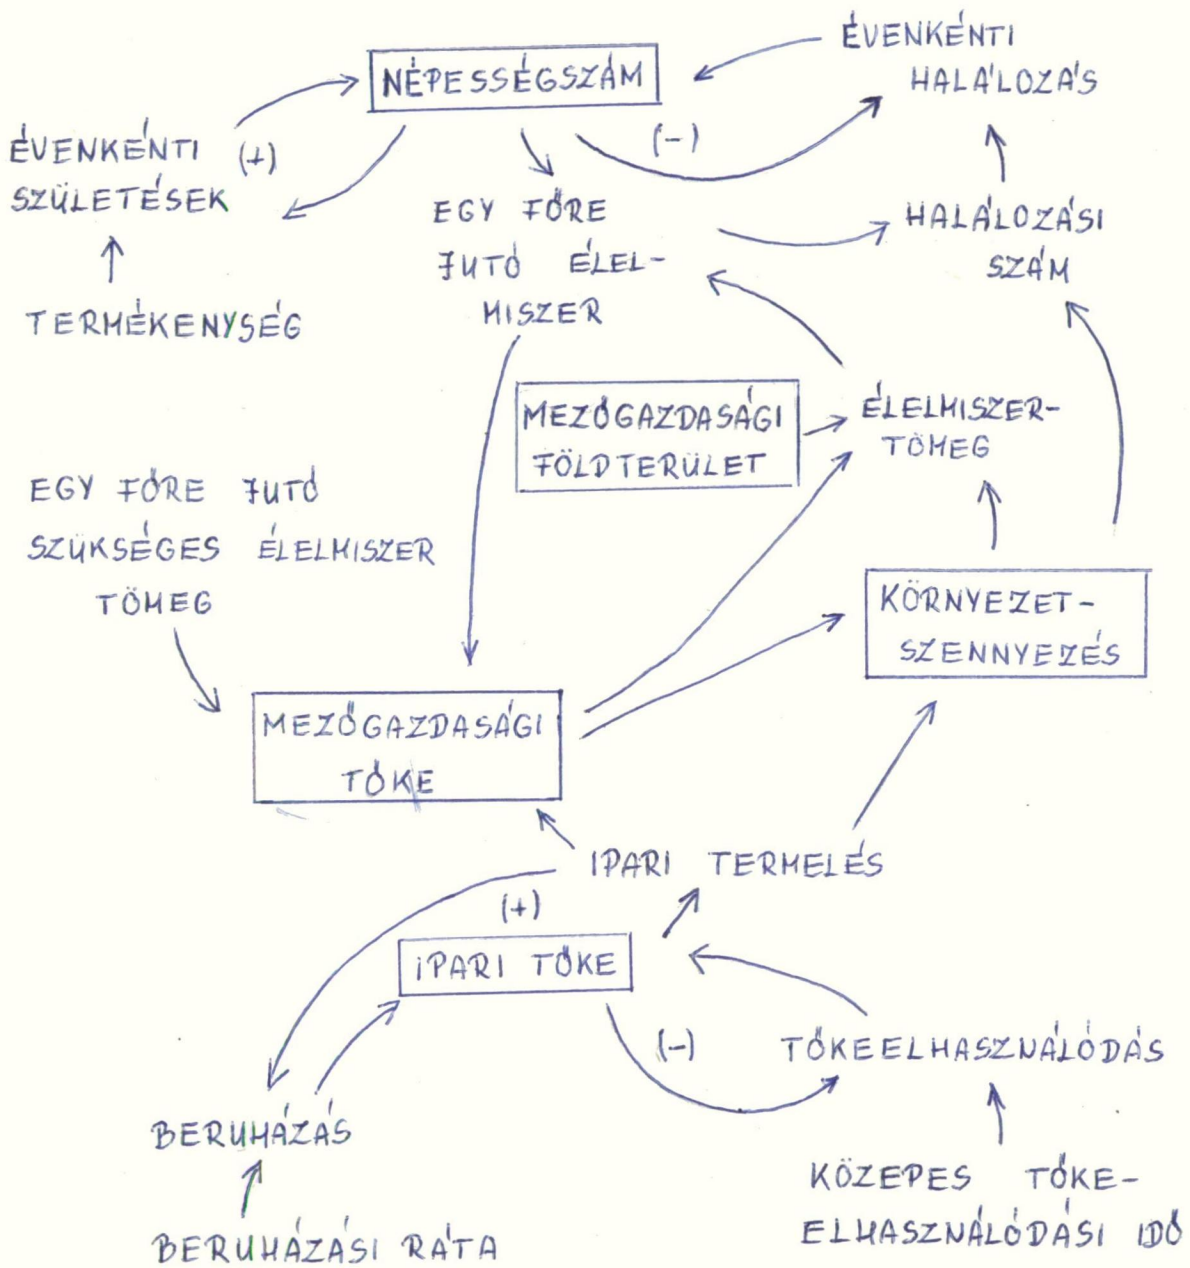 ÉVENKÉNTI
HALÁLOZÁS
NÉPESSÉGSZÁM
(-)
ÉVENKÉNTI (+)
SZÜLETÉSEK
EGY FŐRE
JUTÓ ÉLEL-
MISZER
HALÁLOZÁSI
SZÁM
TERMÉKENYSÉG
MEZŐGAZDASÁGI
FÖLDTERÜLET
ÉLELMISZER-
TÖMEG
EGY FŐRE JUTÓ
SZÜKSÉGES ÉLELMISZER
TÖMEG
KÖRNYEZET-
SZENNYEZÉS
MEZŐGAZDASÁGI
TŐKE
IPARI TERMELÉS
(+)
IPARI TŐKE
(-)
TŐKEELHASZNÁLÓDÁS
BERUHÁZÁS
KÖZEPES TŐKE-
ELHASZNÁLÓDÁSI IDŐ
BERUHÁZÁSI RÁTA